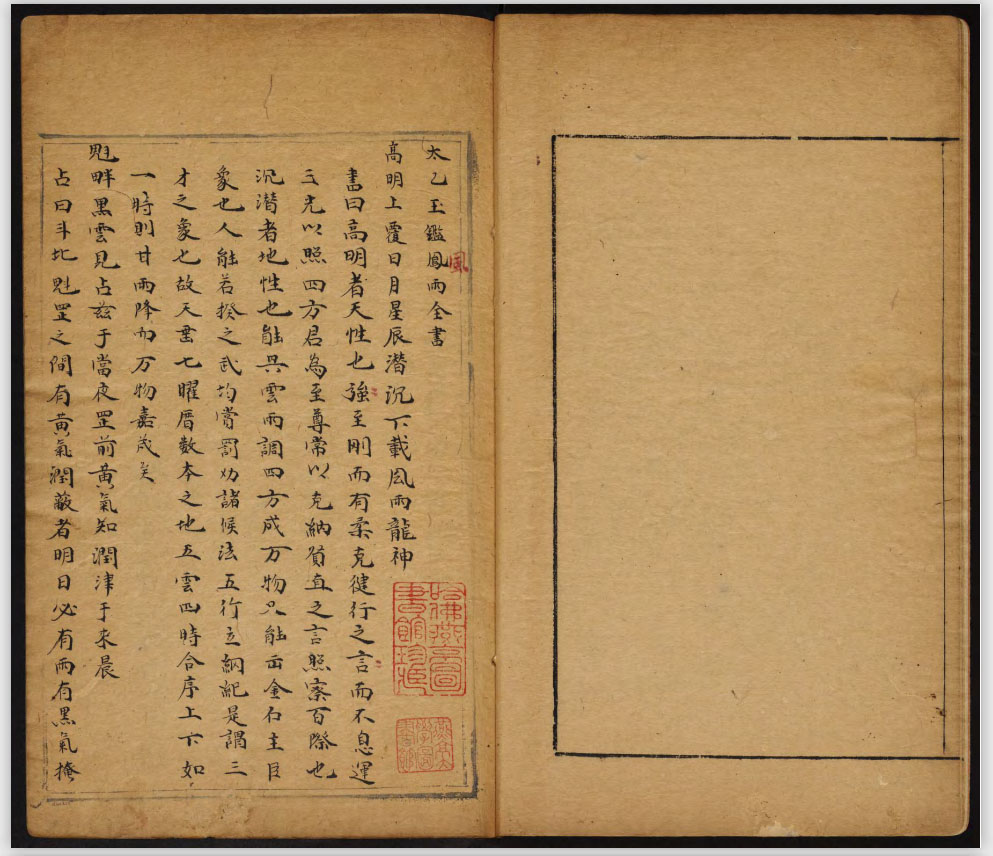 太乙玉鑑鳳雨全書
風
高明上覆日月星辰潛沉下載風雨龍神
書曰高明者天性也強至剛而有柔克健行之言而不息運
三光以照四方君為至尊常以克納貧直之言照察百際也
沉潛者地性也能興雲雨調四方成万物只能出金石主臣
象也人能若揆之武均賞罰功諸候法五行立納紀是謂三
才之象也故天垂七曜厝数本之地五雲四時合序上下如
一時則甘雨降而万物嘉成矣
魁畔黒雲見占兹于當夜罡前黄氣知潤津于来晨
占曰斗北魁罡之間有黄氣潤蔽者明日必有雨有黒氣掩
哈佛燕京圖書館珍藏